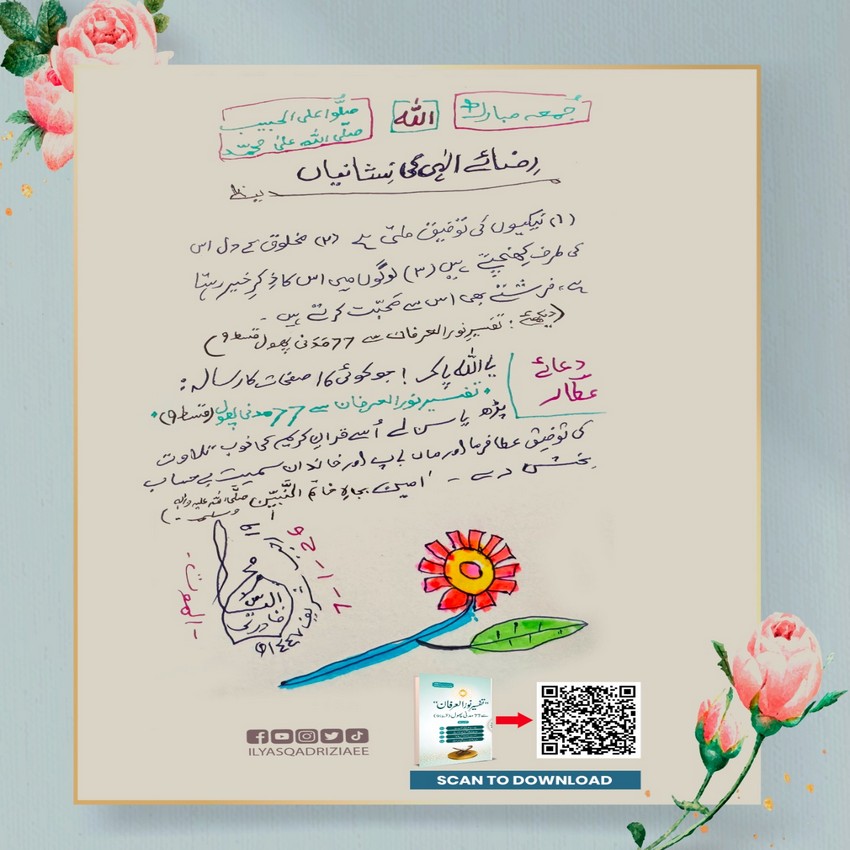 جُمعہ مبارک
اللہ
صلُّوا علی الحبیب
صلَّی اللہ علیٰ محمّد
رِضائے الٰہی کی نِشانیاں
(۱) نیکیوں کی توفیق ملتی ہے (۲) مخلوق کے دل اس
کی طرف کھنچتے ہیں (۳) لوگوں میں اس کا ذِکرِ خیر رہتا
ہے، فرشتے بھی اس سے مَحبّت کرتے ہیں۔
(دیکھئے: تفسیرِ نورالعرفان سے 77 مَدَنی پھول قسط 9)
دعائے
عطّار
یا اللہ پاک! جو کوئی 17 صفحات کا رسالہ:
"تفسیر نورالعرفان سے 77 مدنی پھول (قسط 9)"
پڑھ یا سن لے اُسے قرانِ کریم کی خوب تلاوت
کی توفیق عطا فرما اور ماں باپ اور خاندان سمیت بے حساب
بخش دے۔ اٰمین بجاہِ خاتَمِ النَّبِیّٖن صلَّی اللہ علیہ واٰلہٖ
وسلم۔)
محمد
الیاس
قادری
شریف ۱٤٤٧ھ
"تفسیر نورالعرفان"
سے 77 مدنی پھول
ILYASQADRIZIAEE
SCAN TO DOWNLOAD